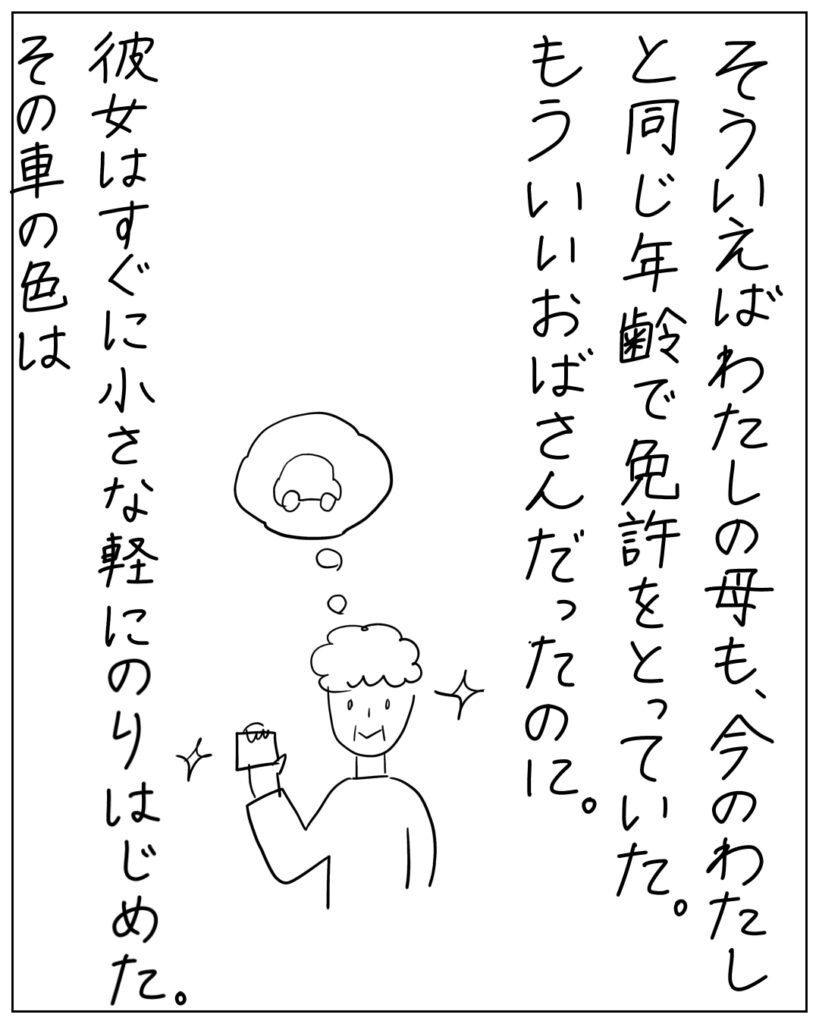 そういえばわたしの母も、今のわたし
と同じ年齢で免許をとっていた。
もういいおばさんだったのに。
彼女はすぐに小さな軽にのりはじめた。
その車の色は